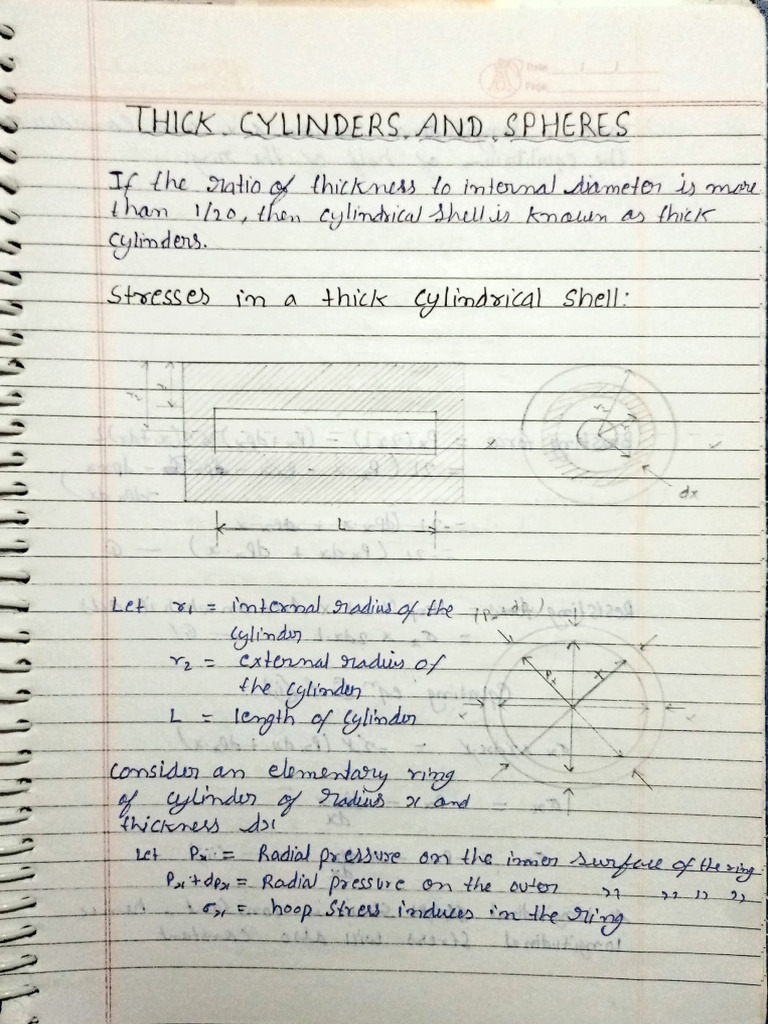 Date / /
Page
THICK CYLINDERS AND SPHERES
If the ratio of thickness to internal diameter is more
than 1/20, then cylindrical shell is known as thick
cylinders.
Stresses in a thick cylindrical shell:
dx
L
Let r₁ = internal radius of the
cylinder
r₂ = external radius of
the cylinder
L = length of cylinder
Px+dPx
Px x
Consider an elementary ring
of cylinder of radius x and
thickness dx
Let Px = Radial pressure on the inner surface of the ring
Px+dPx = Radial pressure on the outer ,, ,, ,, ,,
σx = hoop stress induces in the ring